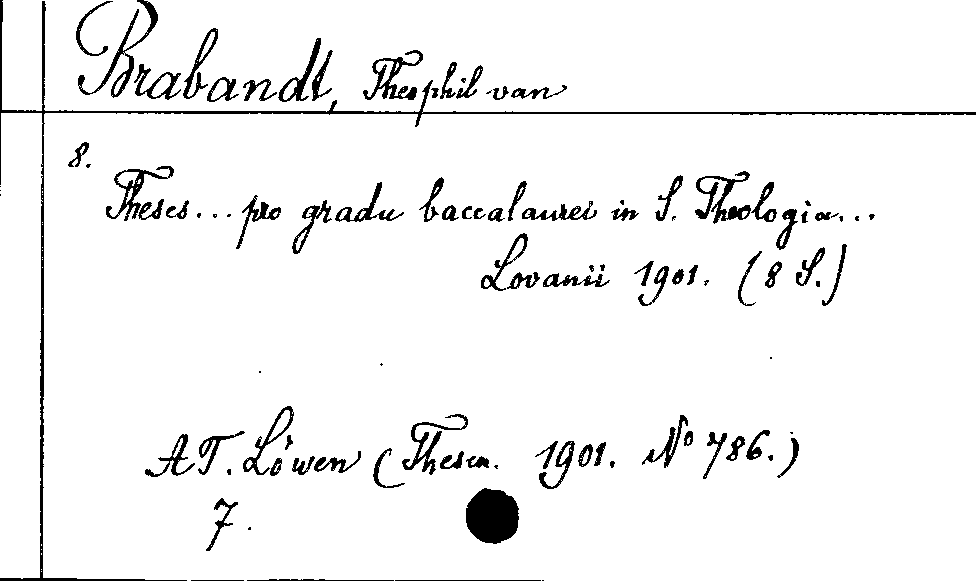 Brabandt, Theophil van
8.
Theses... pro gradu baccalaurei in S. Theologia...
Lovanii 1901. (8 S.)
AT. Löwen (Thesen. 1901. No 786.)
7.